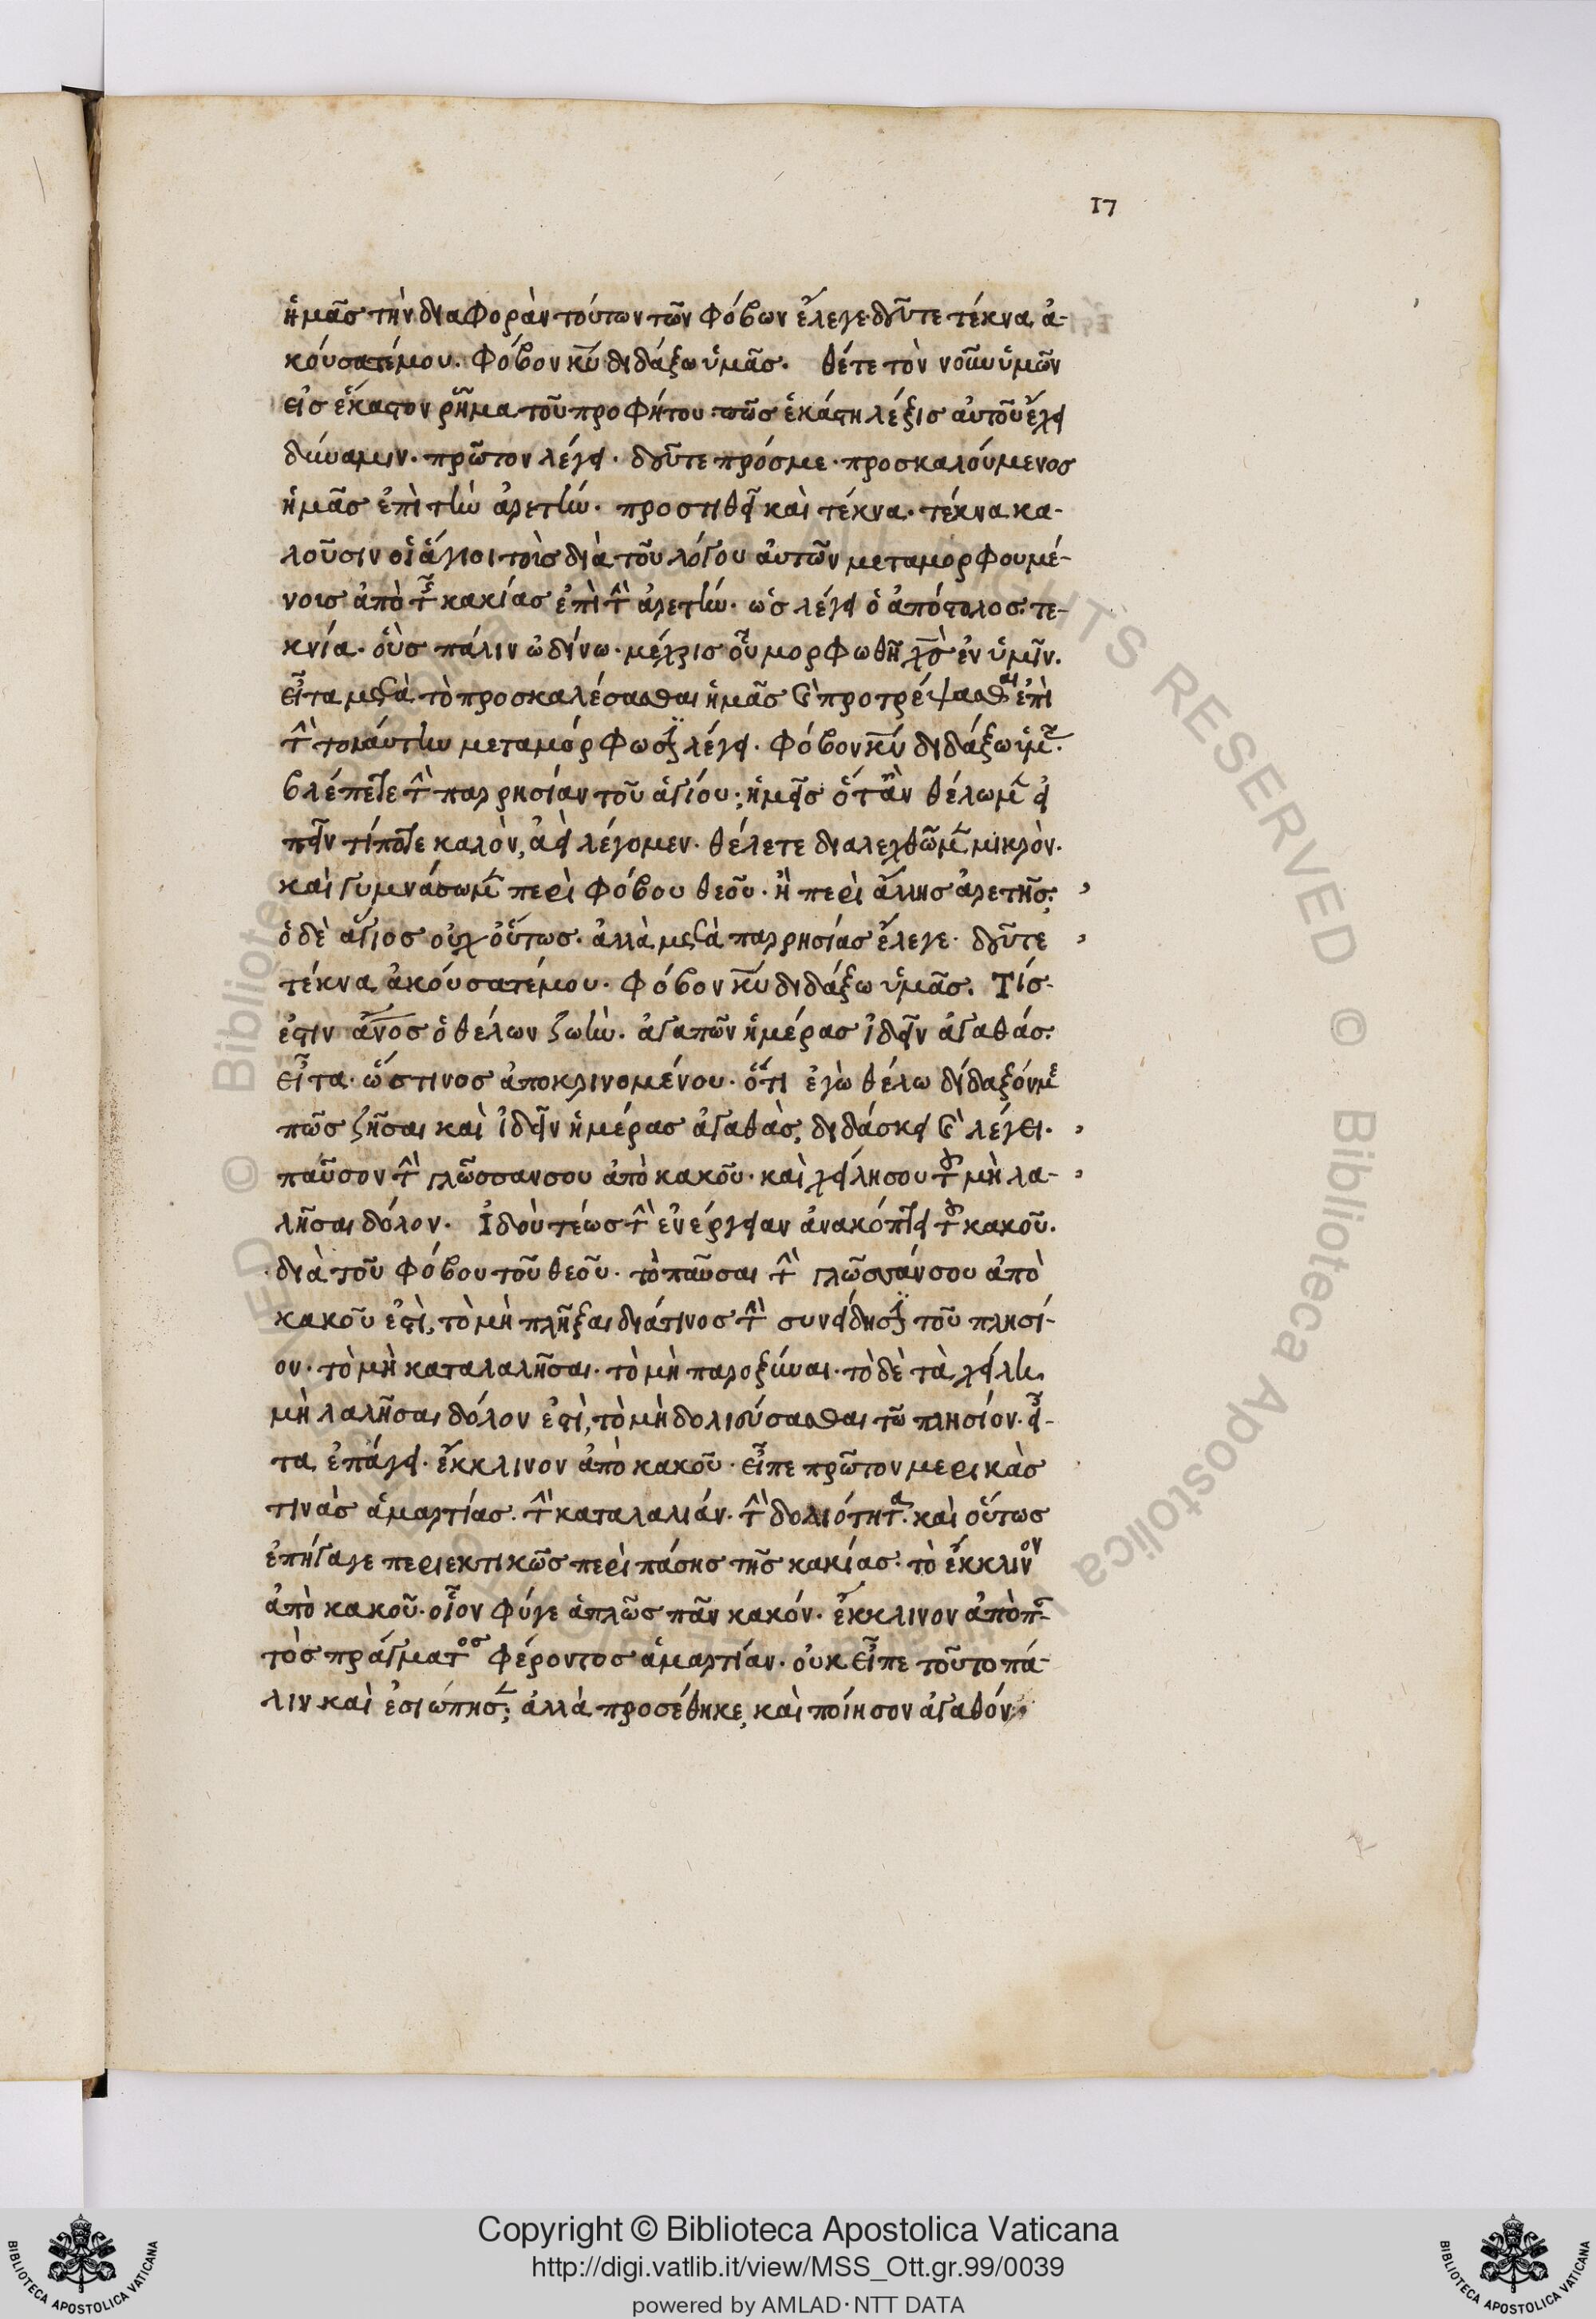 17
ἡμᾶσ τὴν διαφορὰν τούτων τῶν φόβων ἔλεγε· δεῦτε τέκνα ἀ-
κούσατέ μου. φόβον κ̅υ̅ διδάξω ὑμᾶσ. θέτε τὸν νοῦν ὑμῶν
εἰσ ἕκαστον ῥῆμα τοῦ προφήτου πῶσ ἑκάστη λέξισ αὐτοῦ ἔχει
δύναμιν. πρῶτον λέγει. δεῦτε πρόσ με. προσκαλούμενοσ
ἡμᾶσ ἐπὶ τὴν ἀρετήν. προστιθεῖ καὶ τέκνα. τέκνα κα-
λοῦσιν οἱ ἅγιοι τοὶσ διὰ τοῦ λόγου αὐτῶν μεταμορφουμέ-
νοισ ἀπὸ τῆσ κακίασ ἐπὶ τὴν ἀρετήν. ὡσ λέγει ὁ ἀπόστολοσ. τε-
κνία. οὓσ πάλιν ὠδίνω. μέχρισ οὗ μορφωθῆ χ̅σ̅ ἐν ὑμῖν.
εἶτα μετὰ τὸ προσκαλέσασθαι ἡμᾶσ καὶ προτρέψασθαι ἐπὶ
τὴν τοιαύτην μεταμόρφωσιν λέγει. φόβον κ̅υ̅ διδάξω ὑμᾶσ.
βλέπετε τὴν παρρησίαν τοῦ ἁγίου; ἡμεῖσ ὅτἂν θέλωμεν εἰ
πεῖν τίποτε καλὸν, ἀεὶ λέγομεν. θέλετε διαλεχθῶμεν μικρὸν.
καὶ γυμνάσωμεν περὶ φόβου θεοῦ. ἢ περὶ ἄλλησ ἀρετῆσ;
ὁ δὲ ἅγιοσ οὐχ οὕτωσ. ἀλλὰ μετὰ παρρησίασ ἔλεγε. δεῦτε
τέκνα ἀκούσατέ μου. φόβον κ̅υ̅ διδάξω ὑμᾶσ. Τίσ
ἐστιν ἄν̅ο̅σ ὁ θέλων ζωὴν. ἀγαπῶν ἡμέρασ ἰδεῖν ἀγαθάσ.
εἶτα. ὥσ τινοσ ἀποκρινομένου. ὅτι ἐγὼ θέλω δίδαξόν με
πῶσ ζῆσαι καὶ ἰδεῖν ἡμέρασ ἀγαθὰσ, διδάσκει καὶ λέγει.
παῦσον τὴν γλῶσσαν σου ἀπὸ κακοῦ. καὶ χείλη σου τοῦ μὴ λα-
λῆσαι δόλον. Ἰδοὺ τέωσ τὴν ἐνέργειαν ἀνακόπτει τοῦ κακοῦ.
διὰ τοῦ φόβου τοῦ θεοῦ. τὸ παῦσαι τὴν γλῶσσάν σου ἀπὸ
κακοῦ ἐστὶ, τὸ μὴ πλῆξαι διά τινοσ τὴν συνείδησιν τοῦ πλησί-
ον. τὸ μὴ καταλαλῆσαι. τὸ μὴ παροξύναι. τὸ δὲ τὰ χείλη
μὴ λαλῆσαι δόλον ἐστὶ, τὸ μὴ δολιεύσασθαι τῶ πλησίον. εἶ-
τα ἐπάγει. ἔκκλινον ἀπὸ κακοῦ. εἶπε πρῶτον μερικὰσ
τινὰσ ἁμαρτίασ. τὴν καταλαλιάν. τὴν δολιότητα. καὶ οὕτωσ
ἐπήγαγε περιεκτικῶσ περὶ πάσησ τῆσ κακίασ. τὸ ἔκκλινον
ἀπὸ κακοῦ. οἷον φύγε ἁπλῶσ πᾶν κακόν. ἔκκλινον ἀπὸ παν-
τὸσ πράγματοσ φέροντοσ ἁμαρτίαν. οὐκ εἶπε τοῦτο πά-
λιν καὶ ἐσιώπησεν; ἀλλὰ προσέθηκε, καὶ ποίησον ἀγαθόν.
Copyright © Biblioteca Apostolica Vaticana
http://digi.vatlib.it/view/MSS_Ott.gr.99/0039
powered by AMLAD·NTT DATA